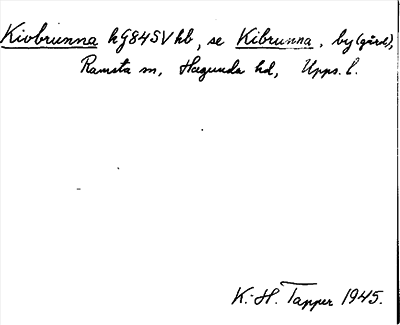 Kivbrunna hG84SV hb, se Kibrunna, by (gård),
Ramsta sn, Hagunda hd, Upps. l.
K.-H. Tapper 1945.